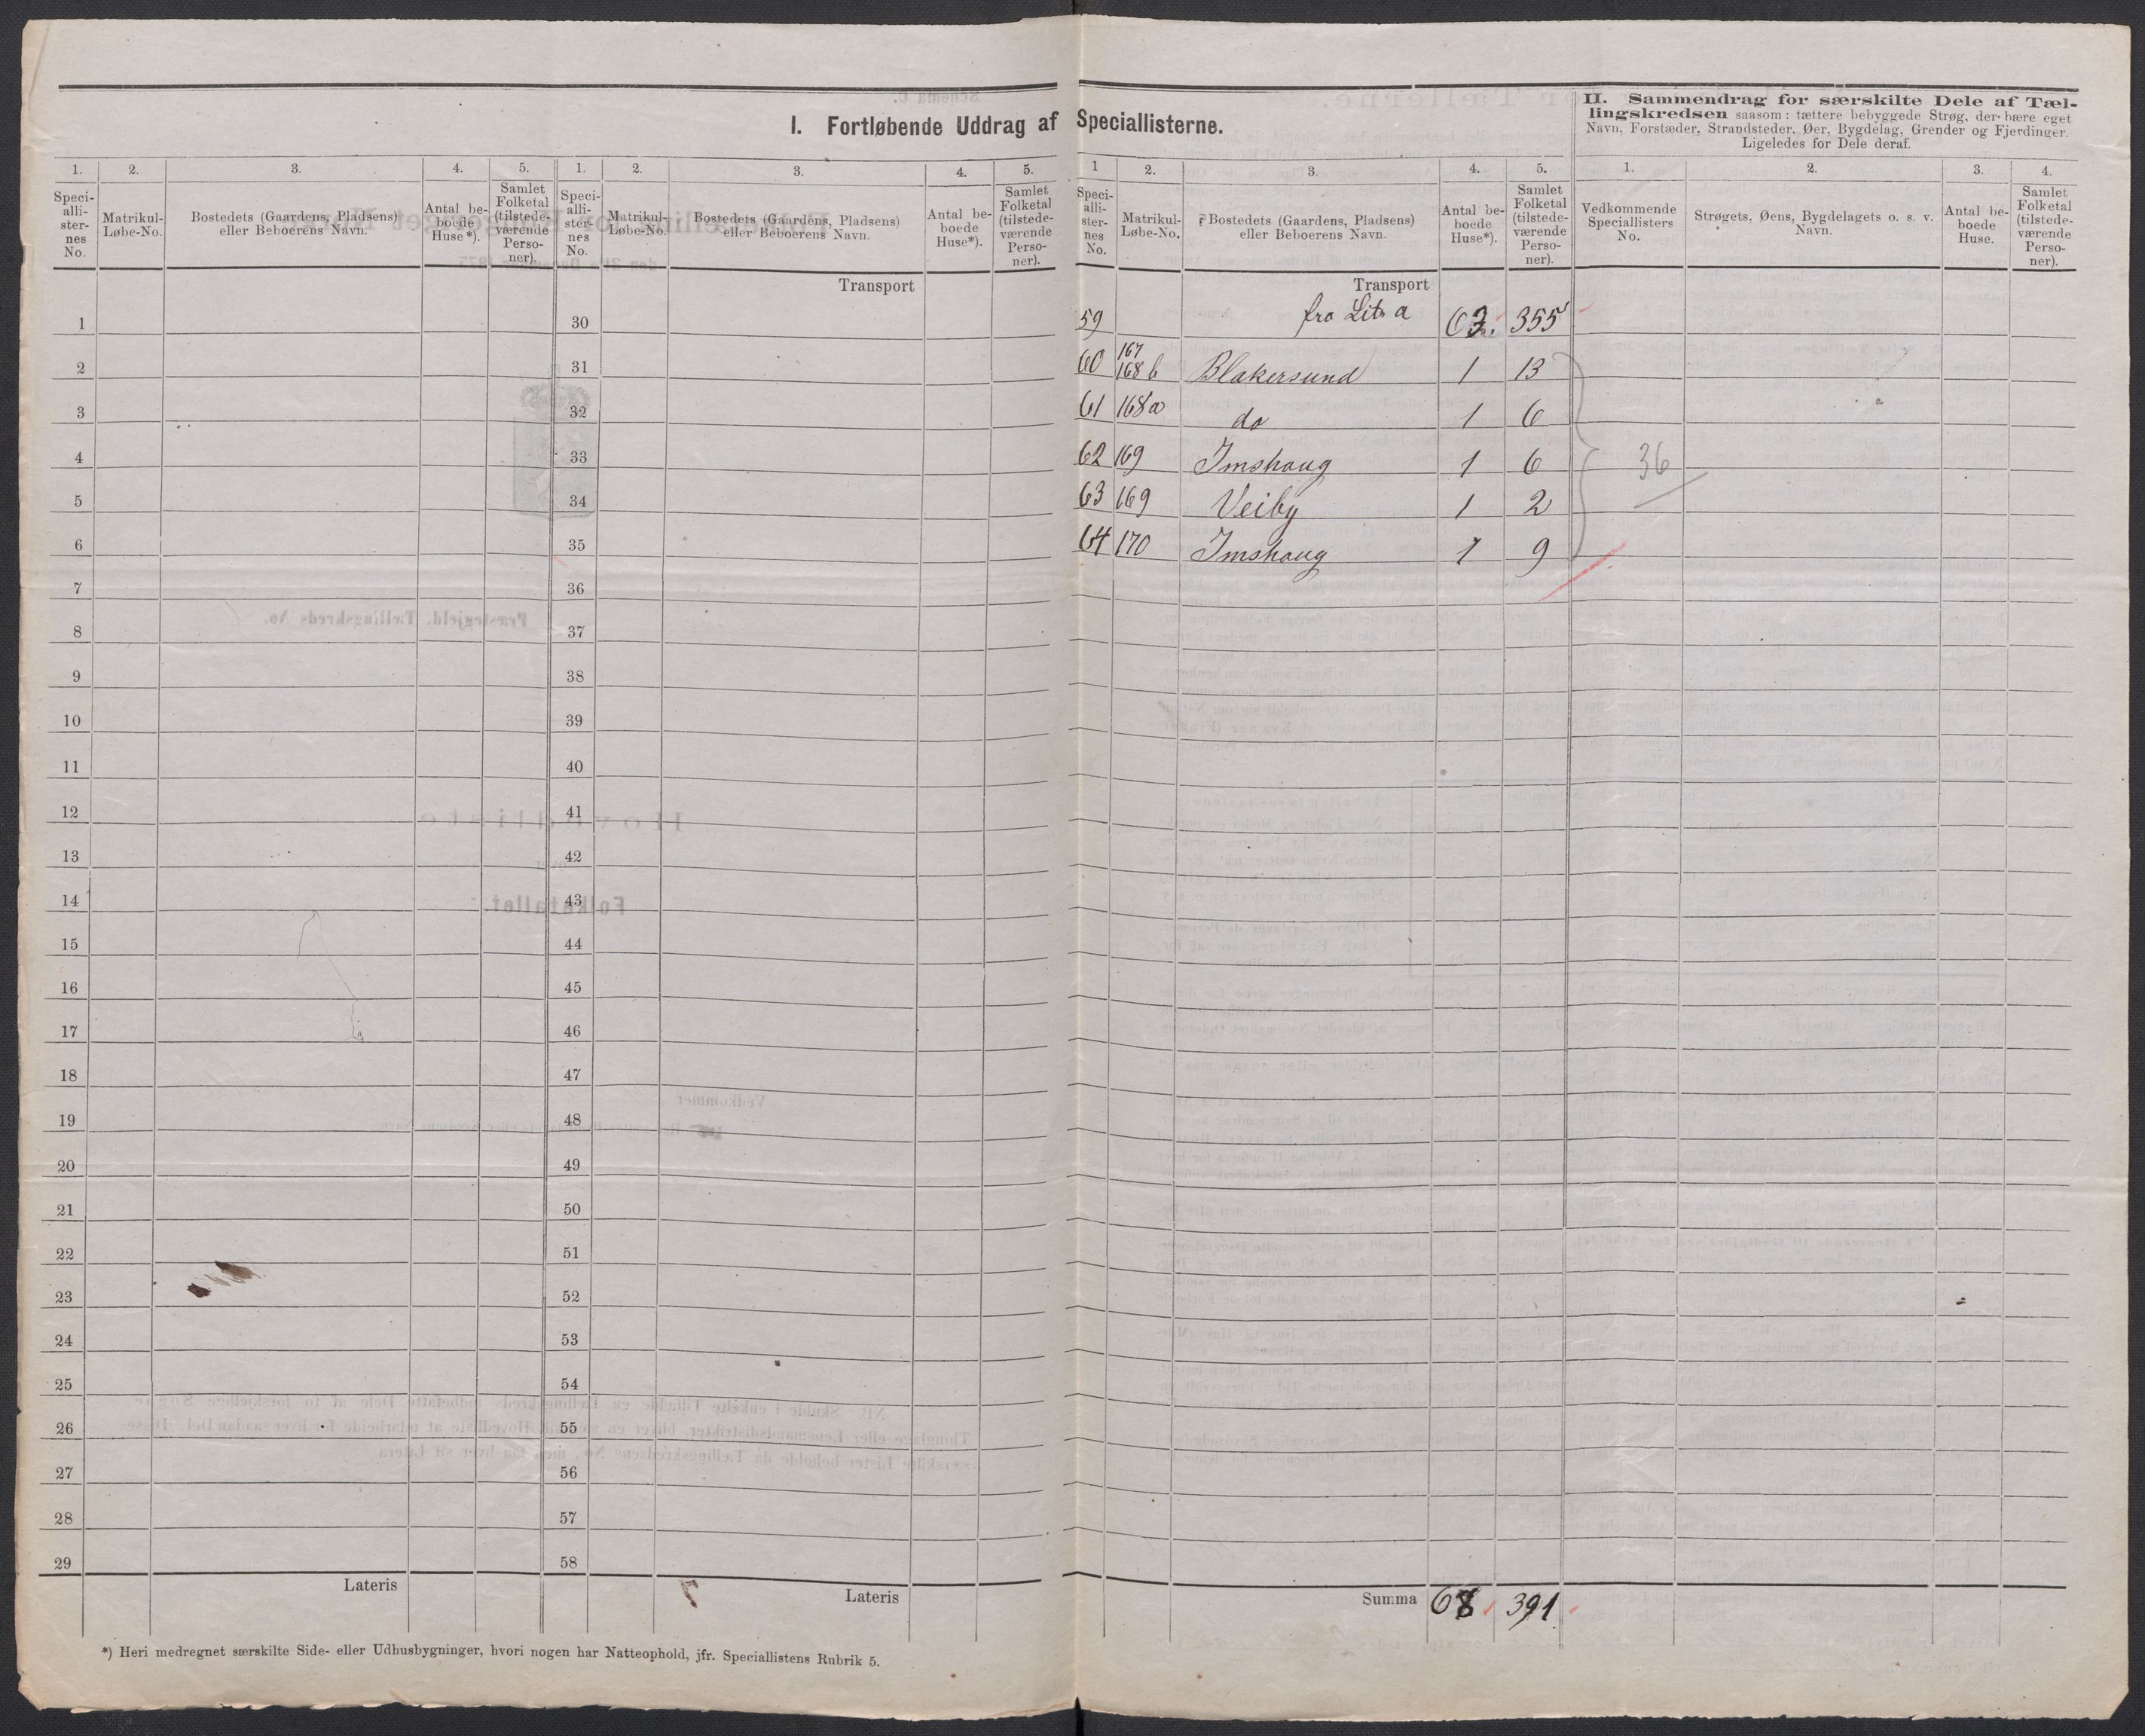 I. Fortløbende Uddrag af Speciallisterne.
II. Sammendrag for særskilte Dele af Tæl-
lingskredsen saasom: tættere bebyggede Strøg, der bære eget
Navn, Forstæder, Strandsteder, Øer, Bygdelag, Grender og Fjerdinger.
Ligeledes for Dele deraf.
1. 2. 3. 4. 5. 1. 2. 3. 4. 5. 1 2. 3. 4. 5. 1. 2. 3. 4.
Speci-
alli-
ster-
nes
No.
Matrikul-
Løbe-No.
Bostedets (Gaardens, Pladsens)
eller Beboerens Navn.
Antal be-
boede
Huse*).
Samlet
Folketal
(tilstede-
værende
Perso-
ner).
Speci-
alli-
ster-
nes
No.
Matrikul-
Løbe-No.
Bostedets (Gaardens, Pladsens)
eller Beboerens Navn.
Antal be-
boede
Huse*).
Samlet
Folketal
(tilstede-
værende
Perso-
ner).
Speci-
alli-
ster-
nes
No.
Matrikul-
Løbe-No.
Bostedets (Gaardens, Pladsens)
eller Beboerens Navn.
Antal be-
boede
Huse*).
Samlet
Folketal
(tilstede-
værende
Perso-
ner).
Vedkommende
Speciallisters
No.
Strøgets, Øens, Bygdelagets o. s. v.
Navn.
Antal be-
boede
Huse.
Samlet
Folketal
(tilstede-
værende
Perso-
ner).
Transport
Transport
1 30 59 fra Litr a 63. 355
2 31 60 167 168 b Blakersund 1 13
3 32 61 168a do 1 6
4 33 62 169 Imshaug 1 6 36
5 34 63 169 Veiby 1 2
6 35 64 170 Imshaug 1 9
7 36
8 37
9 38
10 39
11 40
12 41
13 42
14 43
15 44
16 45
17 46
18 47
19 48
20 49
21 50
22 51
23 52
24 53
25 54
26 55
27 56
28 57
29 58
Lateris Lateris Summa 68 391
*) Heri medregnet særskilte Side- eller Udhusbygninger, hvori nogen har Natteophold, jfr. Speciallistens Rubrik 5.